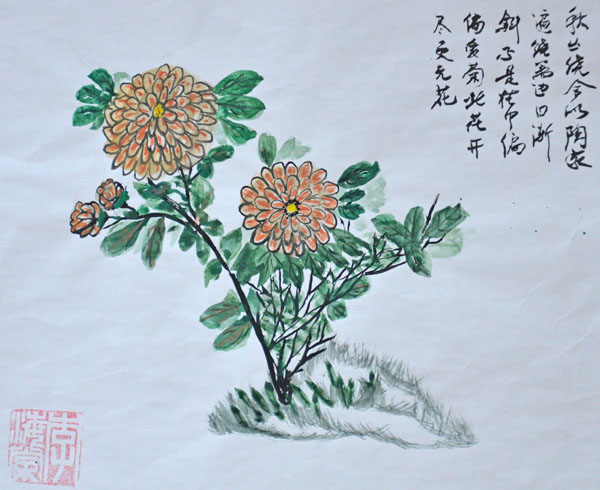 秋丛绕舍似陶家
遍绕篱边日渐
斜不是花中偏
偏爱菊此花开
尽更无花
海棠